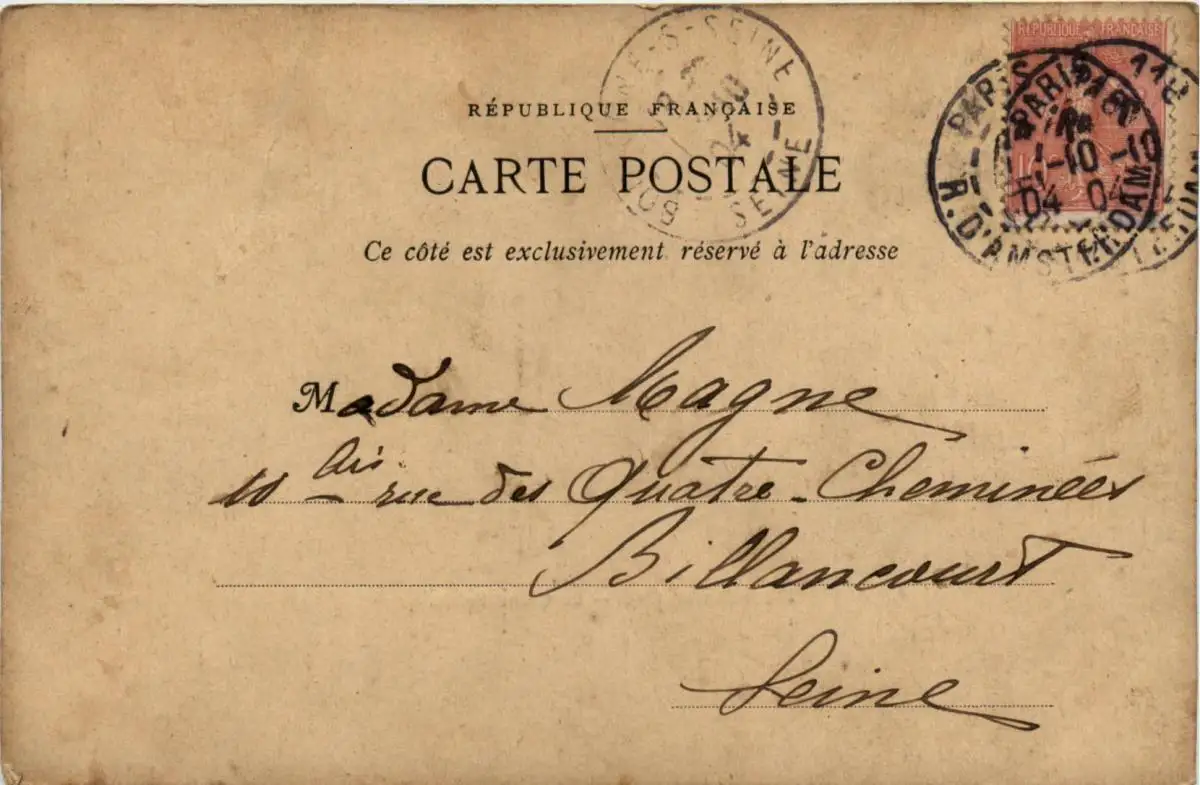 RÉPUBLIQUE FRANÇAISE
RÉPUBLIQUE FRANÇAISE
CARTE POSTALE
Ce côté est exclusivement réservé à l'adresse
PARIS 118
PARIS
R. D'AMSTERDAM
-S-SEINE
SEINE
04
Madame Magne
bis
rue des Quatre-Cheminées
Billancourt
Seine